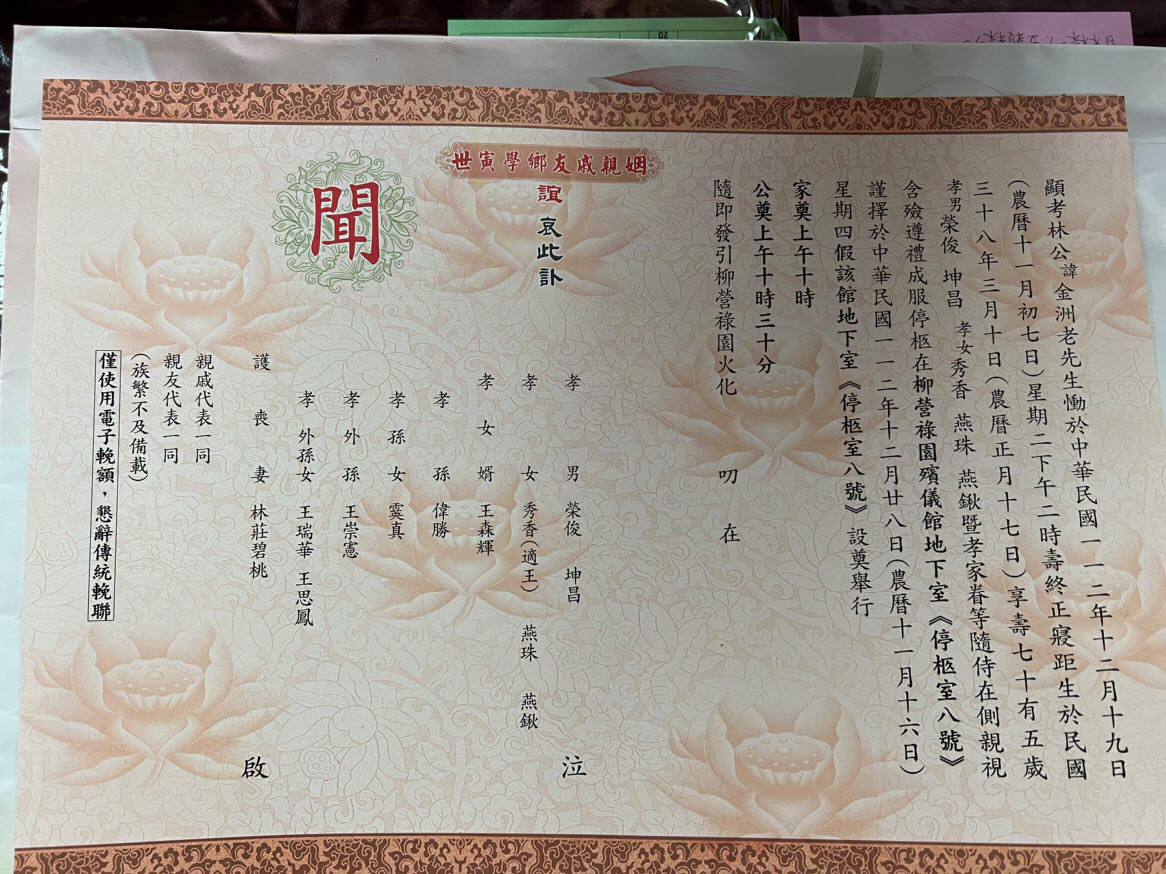 顯考林公諱金洲老先生慟於中華民國一一二年十二月十九日
(農曆十一月初七日)星期二下午二時壽終正寢距生於民國
三十八年三月十日(農曆正月十七日)享壽七十有五歲
孝男榮俊 坤昌 孝女秀香 燕珠 燕鍬暨孝家眷等隨侍在側親視
含殮遵禮成服停柩在柳營祿園殯儀館地下室《停柩室八號》
謹擇於中華民國一一二年十二月廿八日(農曆十一月十六日)
星期四假該館地下室《停柩室八號》設奠舉行
家奠上午十時
公奠上午十時三十分
隨即發引柳營祿園火化 叨在
世寅學鄉友戚親姻
誼 哀此訃
聞
孝男 榮俊 坤昌
孝女 秀香(適王) 燕珠 燕鍬
孝女婿 王森輝
孝孫 偉勝
孝孫女 霙真
孝外孫 王崇憲
孝外孫女 王瑞華 王思鳳
泣
護喪妻 林莊碧桃
啟
親戚代表一同
親友代表一同
(族繁不及備載)
僅使用電子輓額,懇辭傳統輓聯
20